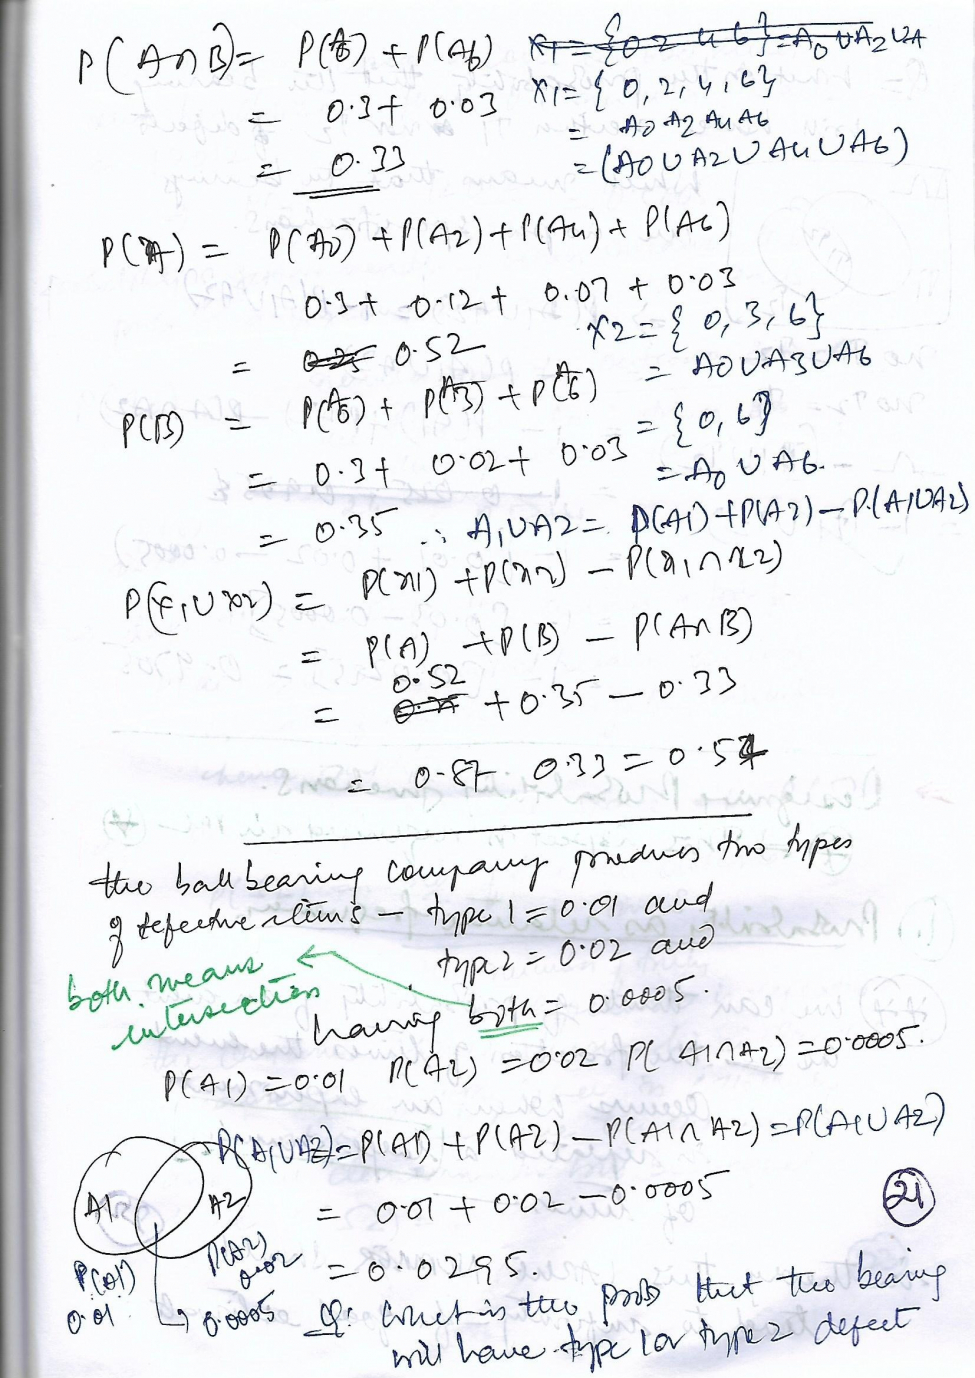 P(A∩B) = P(A0) + P(A6)
= 0.3 + 0.03
= 0.33
X1 = {0 2 4 6} = A0 U A2 U A
X1 = {0, 2, 4, 6}
= A0 A2 A4 A6
= (A0 U A2 U A4 U A6)
P(A) = P(A0) + P(A2) + P(A4) + P(A6)
0.3 + 0.12 + 0.07 + 0.03
= 0.52
X2 = {0, 3, 6}
= A0 U A3 U A6
P(B) = P(A0) + P(A3) + P(A6)
= {0, 6}
= 0.3 + 0.02 + 0.03
= A0 U A6.
= 0.35 ∴ A1UA2 = P(A1) + P(A2) – P(A1UA2)
P(x1 U x2) = P(x1) + P(x2) – P(x1 ∩ x2)
= P(A) + P(B) – P(A∩B)
0.52
= + 0.35 – 0.33
= 0.87 0.33 = 0.54
the ball bearing company produces two types
of defective items – type 1 = 0.01 and
type 2 = 0.02 and
both means
intersection
having both = 0.0005.
P(A1) = 0.01 P(A2) = 0.02 P(A1∩A2) = 0.0005.
P(A1UA2) = P(A1) + P(A2) – P(A1∩A2) = P(A1UA2)
A1 A2
= 0.01 + 0.02 – 0.0005
21
P(A1)
0.01
P(A2)
0.02
= 0.0295.
0.0005
Q: What is the prob that the bearing
will have type 1 or type 2 defect